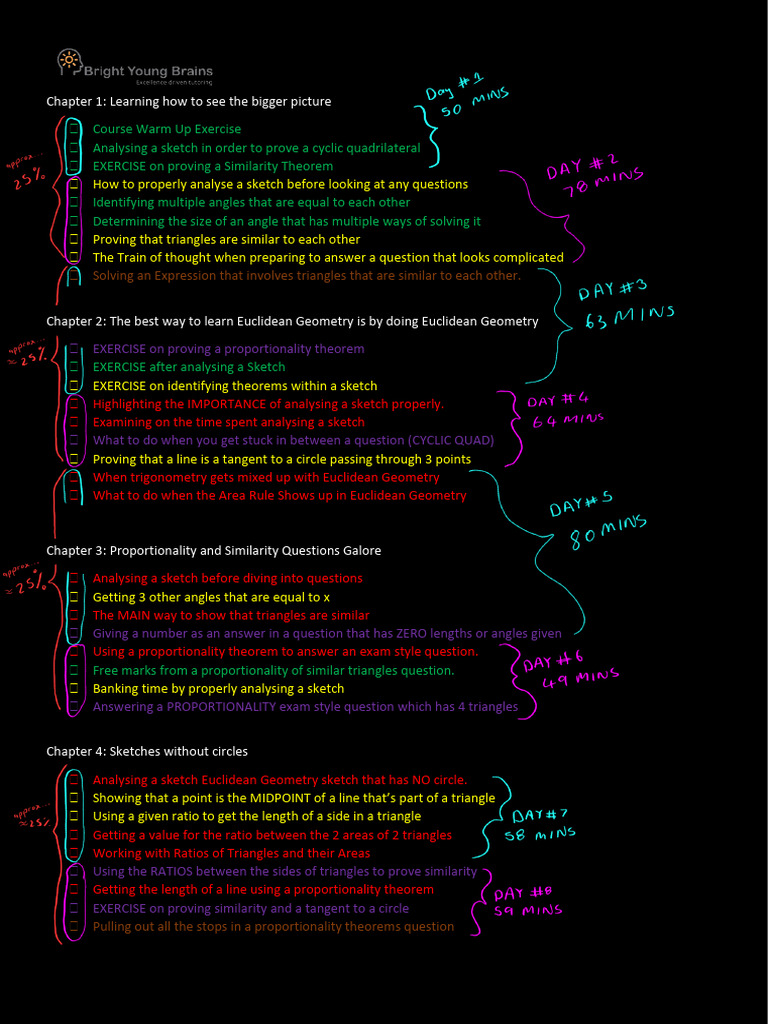 Bright Young Brains
Excellence driven tutoring
Day #1
50 MINS
Chapter 1: Learning how to see the bigger picture
approx...
25%
Course Warm Up Exercise
Analysing a sketch in order to prove a cyclic quadrilateral
EXERCISE on proving a Similarity Theorem
DAY #2
78 MINS
How to properly analyse a sketch before looking at any questions
Identifying multiple angles that are equal to each other
Determining the size of an angle that has multiple ways of solving it
Proving that triangles are similar to each other
The Train of thought when preparing to answer a question that looks complicated
Solving an Expression that involves triangles that are similar to each other.
DAY #3
63 MINS
Chapter 2: The best way to learn Euclidean Geometry is by doing Euclidean Geometry
approx...
≈25%
EXERCISE on proving a proportionality theorem
EXERCISE after analysing a Sketch
EXERCISE on identifying theorems within a sketch
DAY #4
64 MINS
Highlighting the IMPORTANCE of analysing a sketch properly.
Examining on the time spent analysing a sketch
What to do when you get stuck in between a question (CYCLIC QUAD)
Proving that a line is a tangent to a circle passing through 3 points
When trigonometry gets mixed up with Euclidean Geometry
What to do when the Area Rule Shows up in Euclidean Geometry
DAY #5
80 MINS
Chapter 3: Proportionality and Similarity Questions Galore
approx...
≈25%
Analysing a sketch before diving into questions
Getting 3 other angles that are equal to x
The MAIN way to show that triangles are similar
Giving a number as an answer in a question that has ZERO lengths or angles given
Using a proportionality theorem to answer an exam style question.
DAY #6
49 MINS
Free marks from a proportionality of similar triangles question.
Banking time by properly analysing a sketch
Answering a PROPORTIONALITY exam style question which has 4 triangles
Chapter 4: Sketches without circles
approx...
≈25%
Analysing a sketch Euclidean Geometry sketch that has NO circle.
Showing that a point is the MIDPOINT of a line that's part of a triangle
Using a given ratio to get the length of a side in a triangle
DAY #7
58 MINS
Getting a value for the ratio between the 2 areas of 2 triangles
Working with Ratios of Triangles and their Areas
Using the RATIOS between the sides of triangles to prove similarity
Getting the length of a line using a proportionality theorem
DAY #8
59 MINS
EXERCISE on proving similarity and a tangent to a circle
Pulling out all the stops in a proportionality theorems question